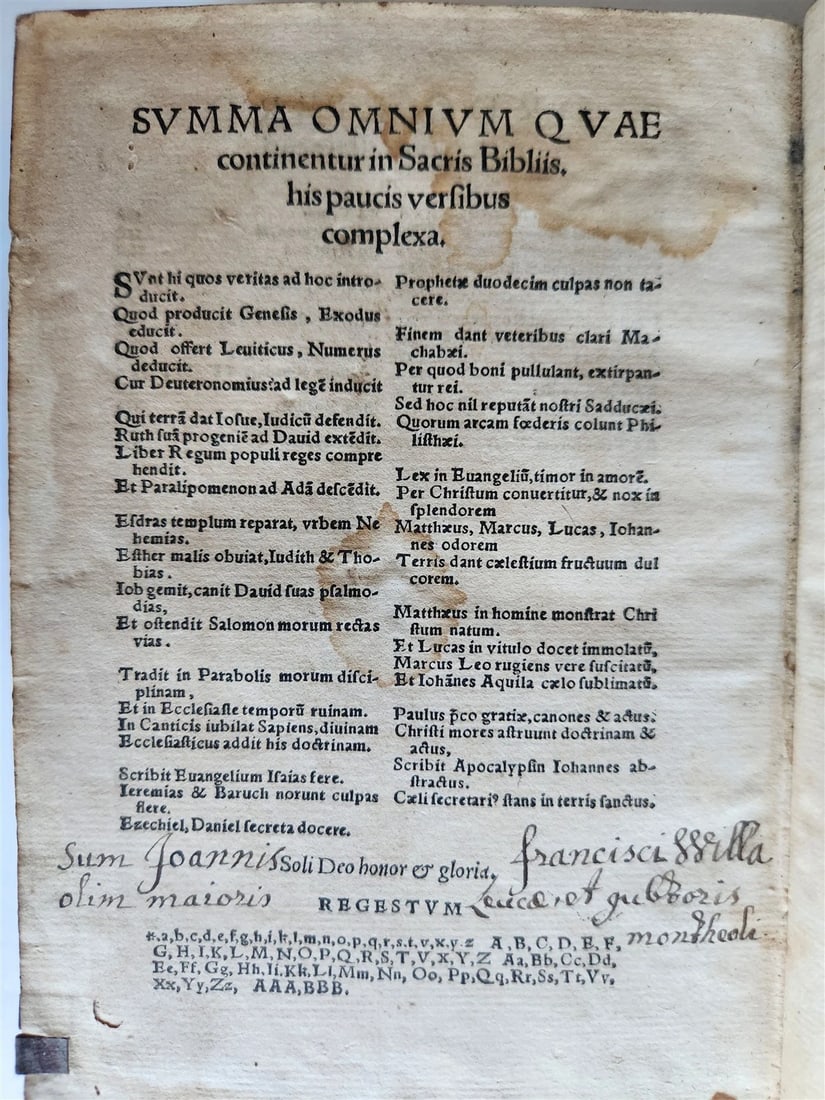 SVMMA OMNIVM QVAE
continentur in Sacris Bibliis,
his paucis verſibus
complexa.
SVnt hi quos veritas ad hoc intro-
ducit.
Quod producit Geneſis, Exodus
educit.
Quod offert Leuiticus, Numerus
deducit.
Cur Deuteronomius?ad legẽ inducit
Qui terrã dat Ioſue, Iudicũ defendit.
Ruth ſuã progeniẽ ad Dauid extẽdit.
Liber Regum populi reges compre
hendit.
Et Paralipomenon ad Adã deſcẽdit.
Eſdras templum reparat, vrbem Ne
hemias.
Eſther malis obuiat, Iudith & Tho-
bias.
Iob gemit, canit Dauid ſuas pſalmo-
dias,
Et oſtendit Salomon morum rectas
vias.
Tradit in Parabolis morum diſci-
plinam,
Et in Eccleſiaſte temporũ ruinam.
In Canticis iubilat Sapiens, diuinam
Eccleſiaſticus addit his doctrinam.
Scribit Euangelium Iſaias fere.
Ieremias & Baruch norunt culpas
flere.
Ezechiel, Daniel ſecreta docere.
Prophetæ duodecim culpas non ta-
cere.
Finem dant veteribus clari Ma-
chabæi.
Per quod boni pullulant, extirpan-
tur rei.
Sed hoc nil reputãt noſtri Sadducæi.
Quorum arcam fœderis colunt Phi-
liſthæi.
Lex in Euangeliũ, timor in amorẽ.
Per Chriſtum conuertitur, & nox in
ſplendorem
Matthæus, Marcus, Lucas, Iohan-
nes odorem
Terris dant cæleſtium fructuum dul
corem.
Matthæus in homine monſtrat Chri
ſtum natum.
Et Lucas in vitulo docet immolatũ,
Marcus Leo rugiens vere ſuſcitatũ,
Et Iohãnes Aquila cælo ſublimatũ.
Paulus p̃co gratiæ, canones & actus.
Chriſti mores aſtruunt doctrinam &
actus,
Scribit Apocalypſin Iohannes ab-
ſtractus.
Cæli ſecretariꝰ ſtans in terris ſanctus.
Sum Joannis Soli Deo honor & gloria. franciſci Willa
olim maioris REGESTVM Leucæ, et
montheoli
*.a,b,c,d,e,f,g,h,i,k,l,m,n,o,p,q,r,s,t,v,x,y.z A,B,C,D,E,F,
G,H,I,K,L,M,N,O,P,Q,R,S,T,V,X,Y,Z Aa,Bb,Cc,Dd,
Ee,Ff,Gg,Hh,Ii,Kk,Ll,Mm,Nn,Oo,Pp,Qq,Rr,Ss,Tt,Vv,
Xx,Yy,Zz, AAA,BBB.